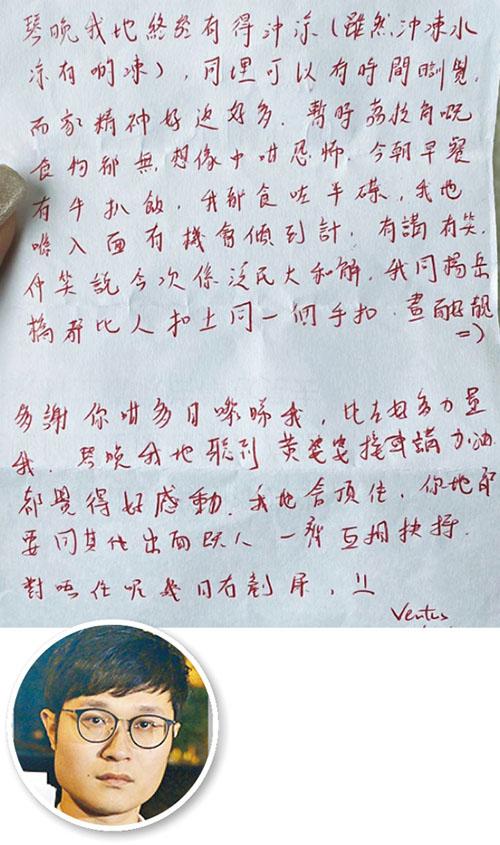 琴晚我地終於有得沖涼(雖然沖凍水
涼有啲凍)，同埋可以有時間瞓覺，
而家精神好返好多．暫時荔枝角嘅
食物都無想像中咁恐怖．今朝早餐
有牛扒飯，我都食咗半碟，我地
喺入面有機會傾到計，有講有笑，
仲笑說今次係泛民大和解．我同楊岳
橋都比人扣上同一個手扣．畫面好靚
=)
多謝你咁多日嚟睇我，比左好多力量
我．琴晚我地聽到黃婆婆揸咪講加油
都覺得好感動．我地會頂住，你地都
要同其他出面既人一齊互相扶持．
對唔住呢幾日冇剃鬚，!!
Ventus